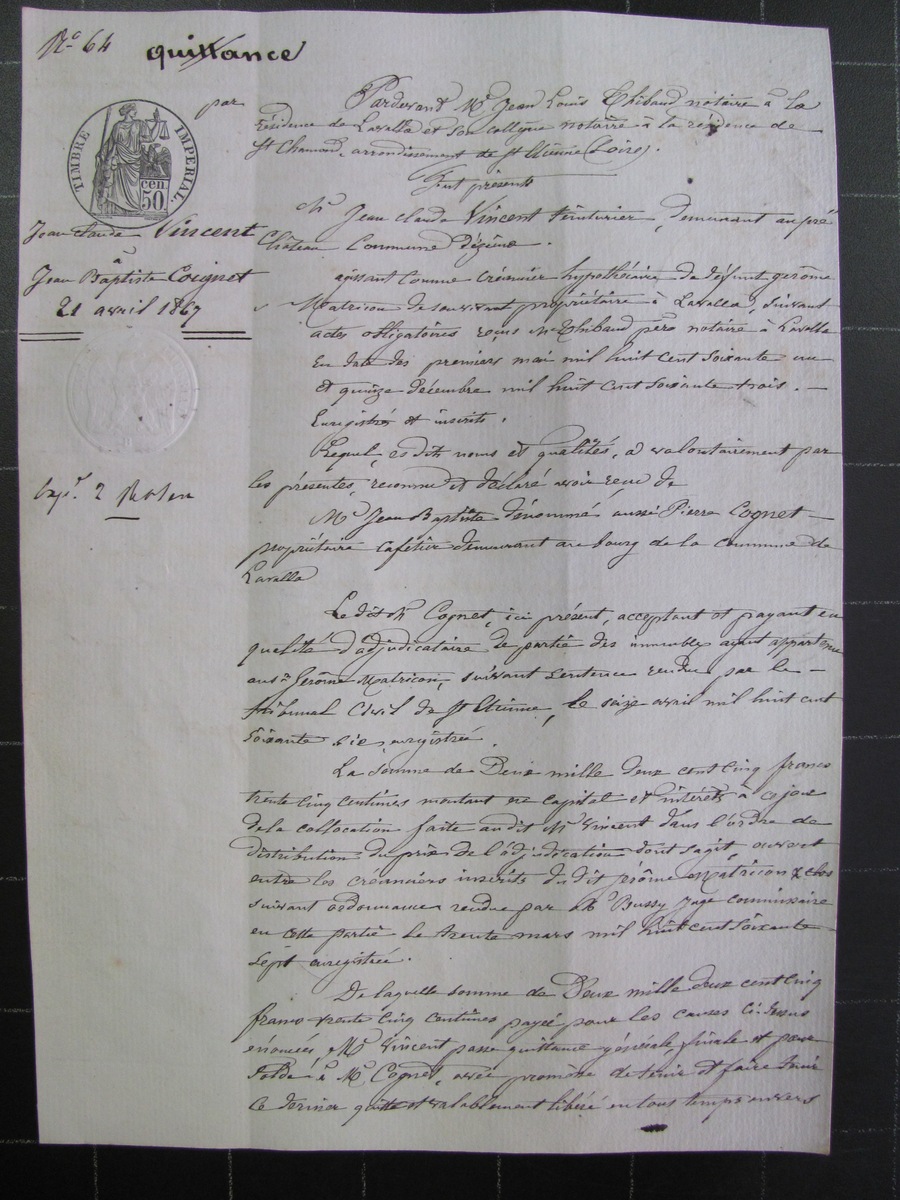 No 64
quittance
TIMBRE IMPÉRIAL.
cen. 50.
par
Jean Claude Vincent
à
Jean Baptiste Coignet
21 avril 1867
exp. 2
Pardevant Me Jean Louis Thibaud notaire à la
résidence de Lavalla et son collègue notaire à la résidence de
St Chamond, arrondissement de St Etienne (Loire).
Fut présent
Mr Jean Claude Vincent teinturier, demeurant au pré
Château Commune d'izieux.
agissant comme créancier hypothécaire de défunt gerôme
Matricon de son vivant propriétaire à Lavalla, suivant
actes obligatoires reçus Me Thibaud père notaire à Lavalla
en date des premier mai mil huit cent soixante un
et quinze décembre mil huit cent soixante trois. —
Enregistrés et inscrits.
Lequel, es dits noms et qualités, a volontairement par
les présentes, reconnu et déclaré avoir reçu de
Mr Jean Baptiste dénommé aussi Pierre Cognet —
propriétaire cafetier demeurant au bourg de la commune de
Lavalla
Le dit Mr Cognet, ici présent, acceptant et payant en
qualité d'adjudicataire de partie des immeubles ayant appartenu
au sr Gerôme Matricon, suivant sentence rendue par le —
tribunal Civil de St Etienne, le seize avril mil huit cent
soixante six, enregistrée.
La somme de Deux mille deux cent cinq francs
trente cinq centimes montant en capital et intérêts à ce jour
de la collocation faite au dit Mr Vincent dans l'ordre de
distribution du prix de l'adjudication dont s'agit, ouvert
entre les créanciers inscrits du dit Jérôme Matricon
suivant ordonnance rendue par Mr Bussy Juge commissaire
en cette partie le trente mars mil huit cent soixante
sept enregistrée.
De laquelle somme de Deux mille deux cent cinq
francs trente cinq centimes payée pour les causes ci dessus
énoncées, Mr Vincent passe quittance générale, finale et pour
solde à Mr Cognet, avec promesse de tenir et faire tenir
ce dernier quitte et valablement libéré en tous temps envers